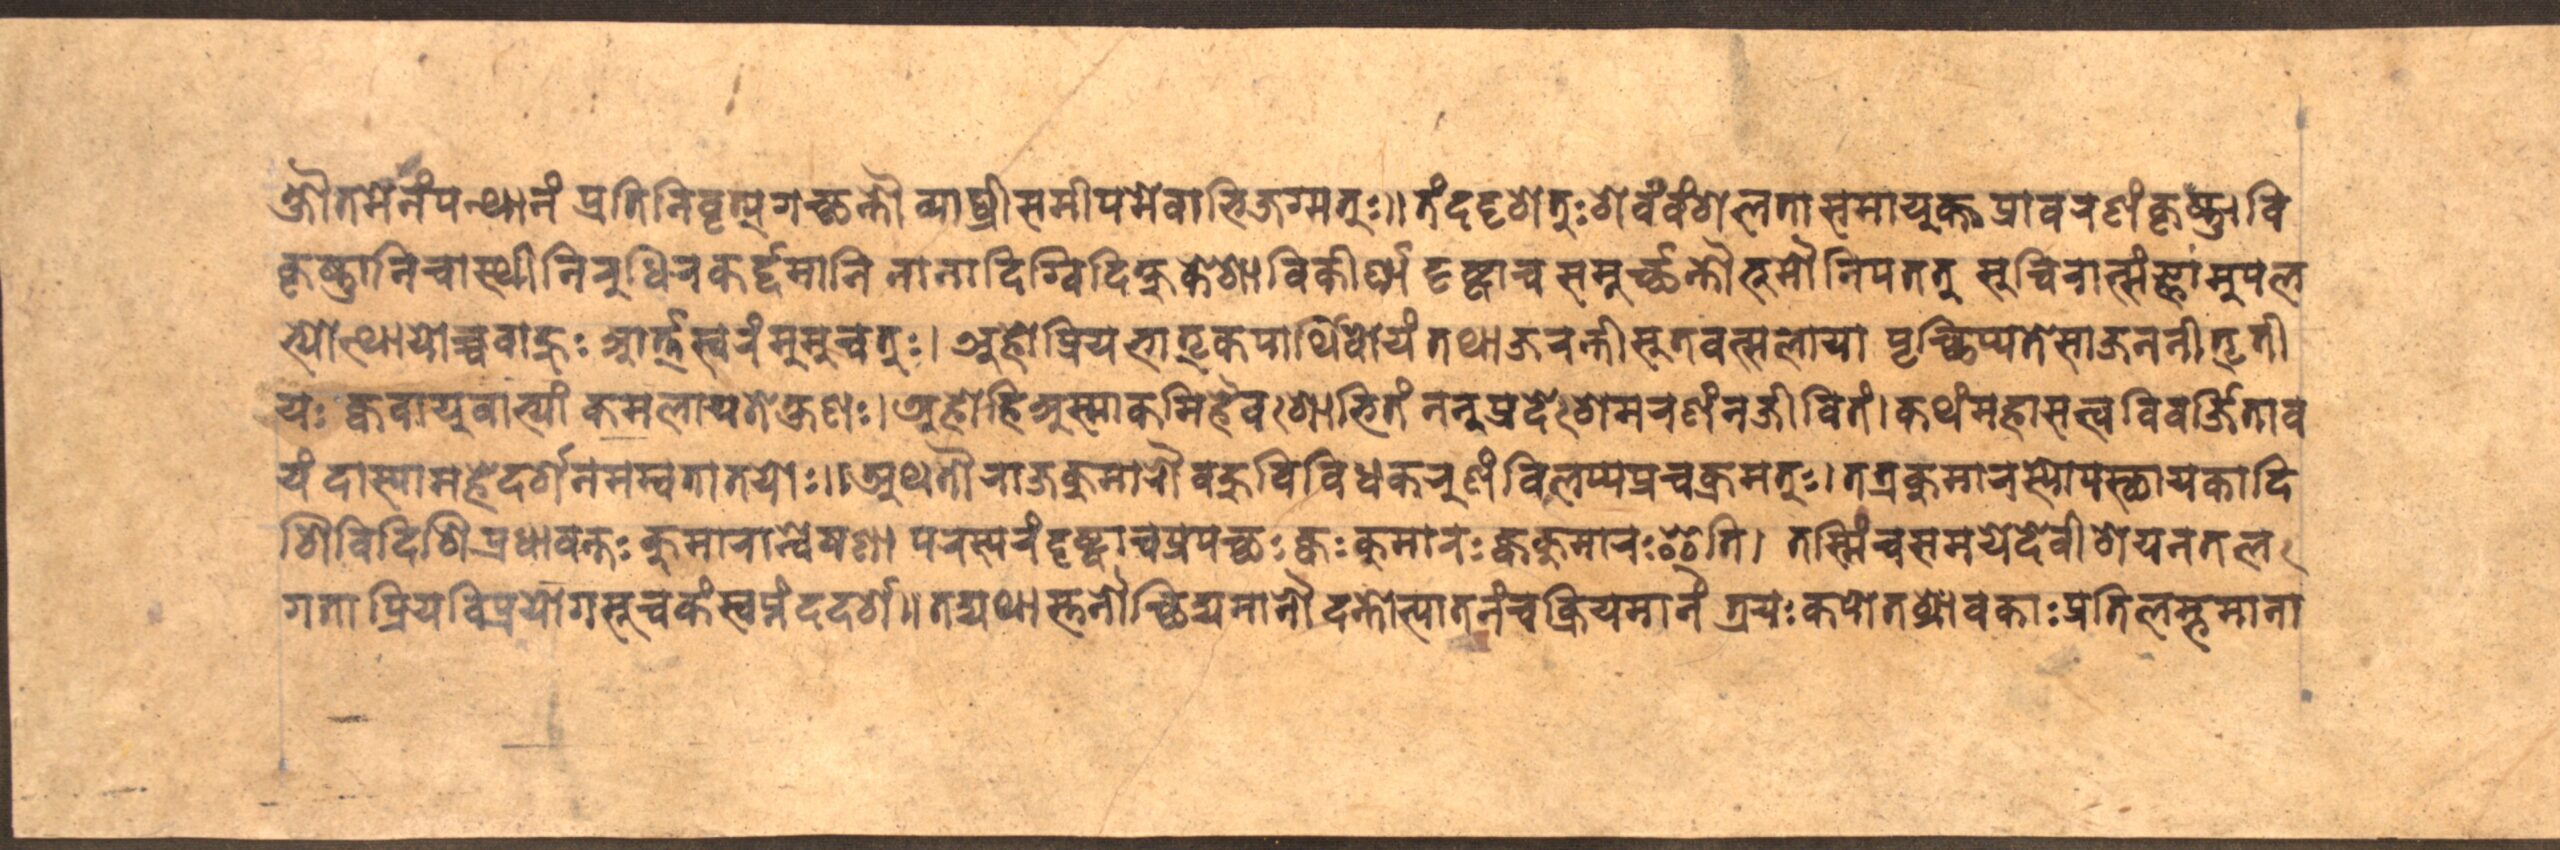 क्तौतमेनंपन्थानं प्रतिनिवृत्य्गच्छन्तौ व्याघ्रीसमीपमेवाभिजग्मतुः॥ तंददृशेतुःशेवंवंशलतासमायुक्तप्रावरणंकृष्ण्टावि
कृष्टानिचास्थीनिरुधिरकर्द्दमानि नानादिग्विदिक्षुकेशाविकीर्ण्णा दृष्ट्वाच समूर्च्छन्तौभुमौनिपततु सुचिरात्संज्ञामुपल
भ्योत्थायोच्चवाहुः आर्त्तस्वरंमुमुचतुः। अहोप्रियभातृकपार्थिवोयं तथाजरन्तीसुतवत्सलाया पृच्छिप्यतेसाजननीतृती
यः क्ववायुवाभ्यां कमलायतेक्षणः। अहोहिअस्माकमिहैवशोभितं ननुप्रदेशेमरणंनजीवितं। कथंमहासत्त्वविवर्ज्जिताव
यं दास्यामहेदर्शनमम्वतातयोः॥ अथतौराजकुमारौवहुविविधकरुणंविलप्यप्रचक्रमतुः। तत्रकुमारस्योपस्थायकादि
शिविदिशिप्रधावन्तः कुमारान्वेषणा परस्परंदृष्ट्वाचप्रपच्छः क्वः कुमारः क्वकुमारःइति। तस्मिंचसमयेदेवीशेयनतल
गता प्रियविप्रयोगसूचकंस्वप्नंददर्श॥ तद्यथास्तनौच्छिद्यमानौदन्तोत्पातनंचक्रियमानं त्रयः कपोतशावकाः प्रतिलम्भमाना